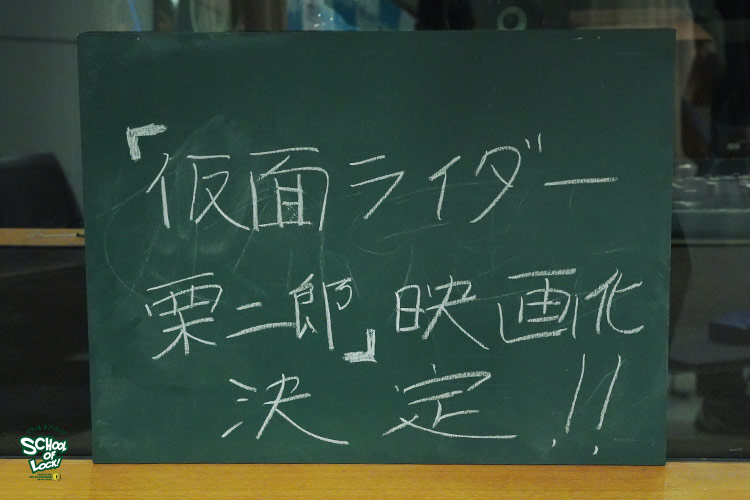 『仮面ライダー
栗二郎』映画化
決定!!
SCHOOL
OF
LOCK!